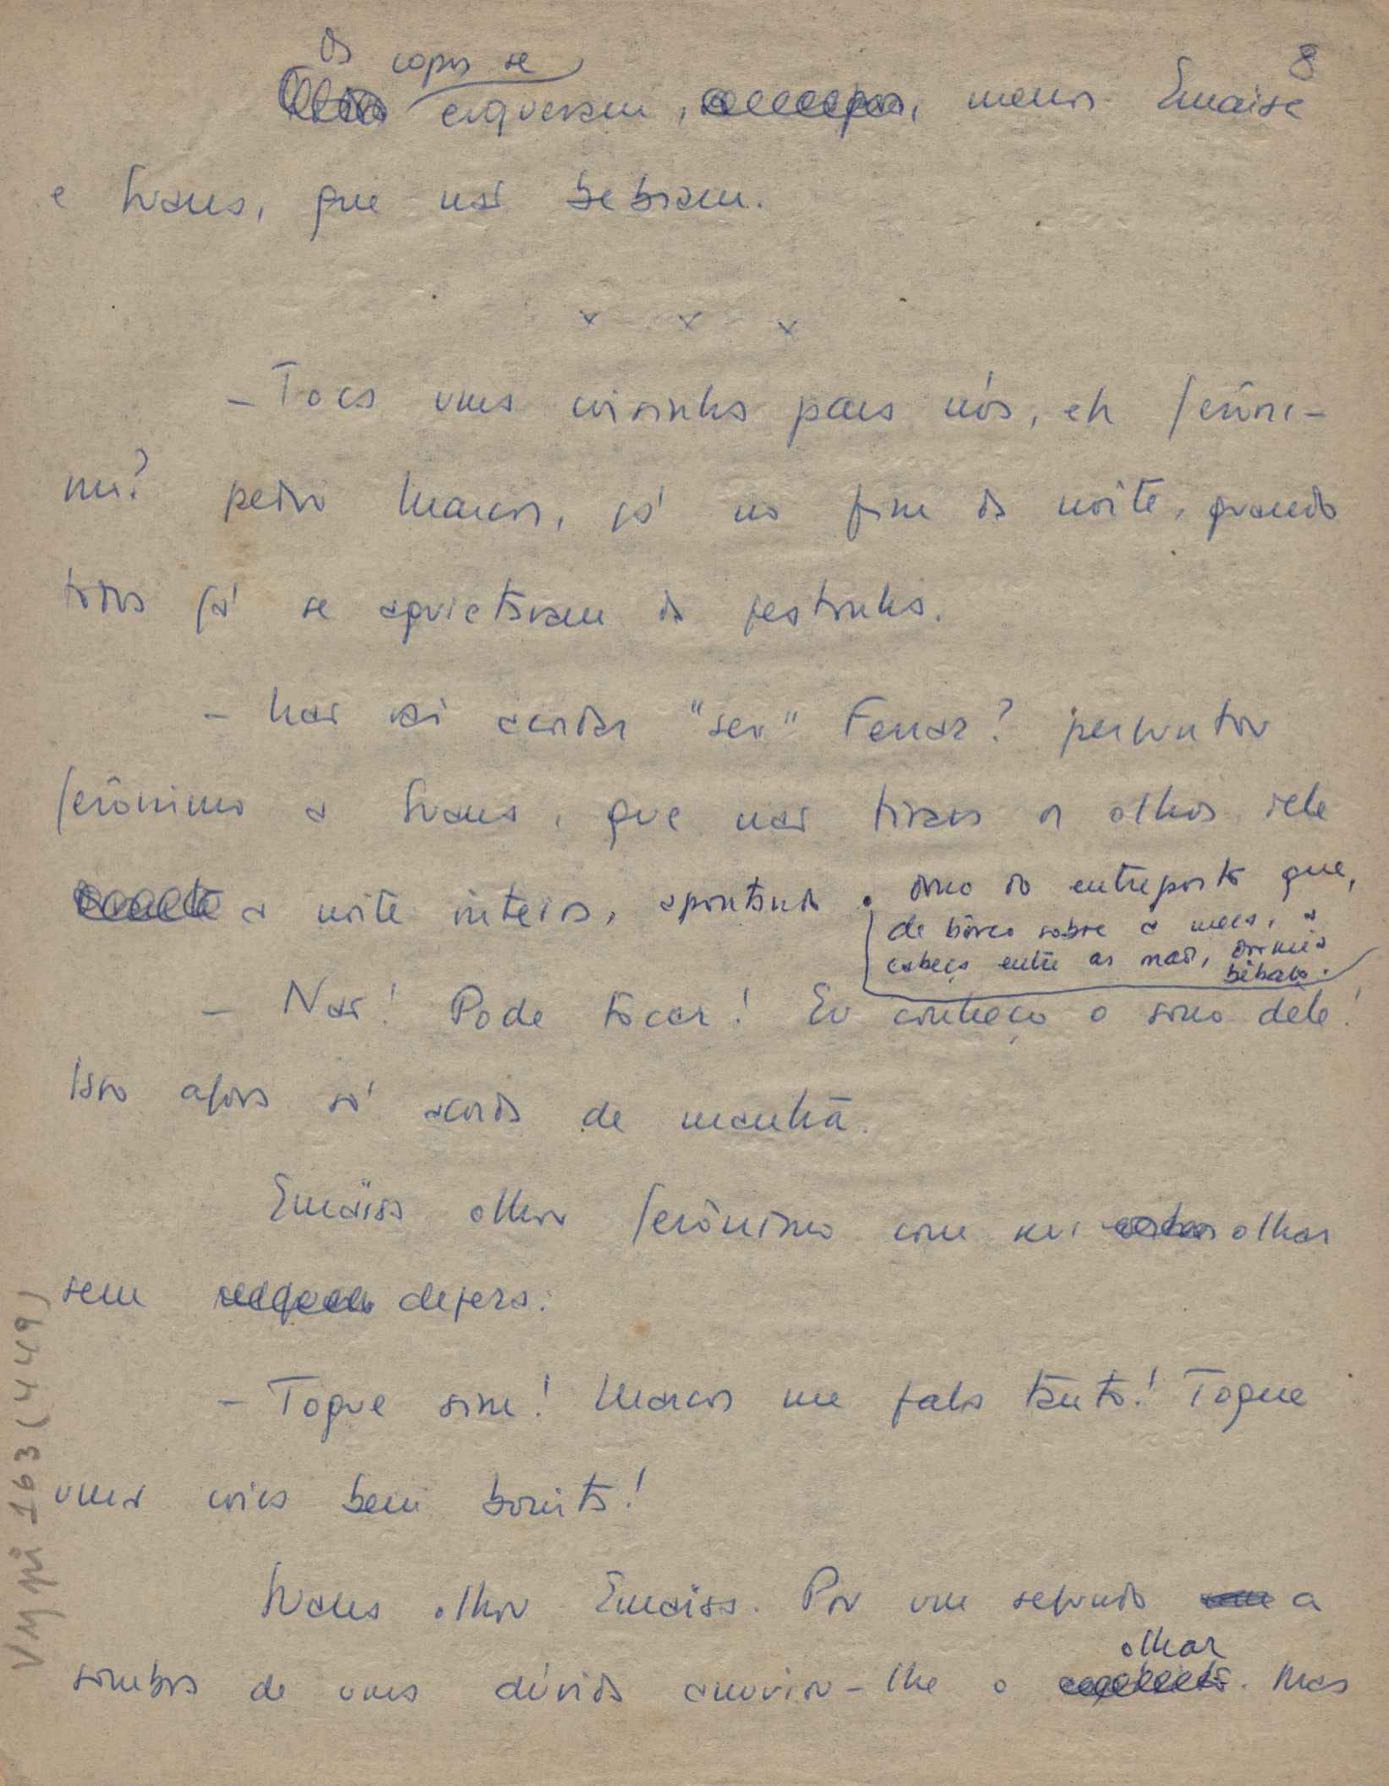 8
Os copos se
ergueram, menos Emaïsa
e que não bebiam.
x x x
— Toca uma coisinha para nós, eh Jerôni-
mo? pediu Marcos, já no fim da noite, quando
todos já se aquietavam da festinha.
— Não vai acordar "seu" Ferraz? perguntou
Jerônimo a que não tirava os olhos dele
a noite inteira, apontando o dono do entreposto que,
de bôrco sobre a mesa, a
cabeça entre as mãos, dormia
bêbado.
— Não! Pode tocar! Eu conheço o sono dele!
Isso agora só acorda de manhã.
Emaïsa olhou Jerônimo com seu olhar
sem defesa:
— Toque sim! Marcos me fala tanto! Toque
uma coisa bem bonita!
olhou Emaïsa. Por um segundo a
olhar
sombra de uma dúvida anuviou-lhe o . Mas
VM pi 163 (449)